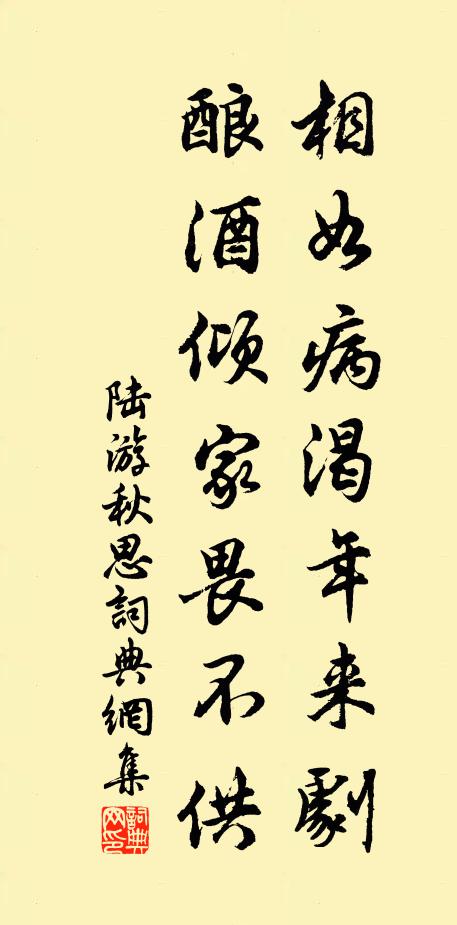 相如病渴年来劇
酿酒倾家畏不供
陆游秋思詞典網集
詞典网印